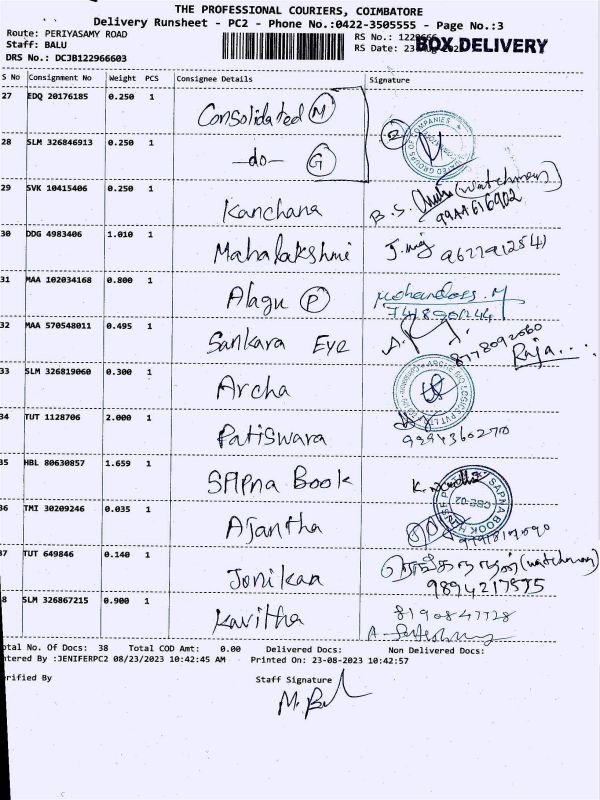 THE PROFESSIONAL COURIERS, COIMBATORE
Delivery Runsheet - PC2 - Phone No.:0422-3505555 - Page No.:3
Route: PERIYASAMY ROAD
Staff: BALU
DRS No.: DCJB122966603
RS No.:
RS Date:
BOX DELIVERY
S No Consignment No Weight PCS Consignee Details Signature
27 EDQ 20176185 0.250 1 Consolidated M
28 SLM 326846913 0.250 1 -do- G
29 SVK 10415406 0.250 1 Kanchana B.S. (watchman)
9944616902
30 DDG 4983406 1.010 1 Mahalakshmi
31 MAA 102034168 0.800 1 Alagu P Mohandoss.M
32 MAA 570548011 0.495 1 Sankara Eye
8778092060
Raja...
33 SLM 326819060 0.300 1 Archa
34 TUT 1128706 2.000 1 Patiswara
9994360270
35 HBL 80630857 1.659 1 SAPna Book
SAPNA BOOK HOUSE
CBE-02
36 TMI 30209246 0.035 1 Ajantha
37 TUT 649846 0.140 1 Jonikaa (watchman)
8 SLM 326867215 0.900 1 Kavitha
8190847728
otal No. Of Docs: 38 Total COD Amt: 0.00 Delivered Docs: Non Delivered Docs:
ntered By :JENIFERPC2 08/23/2023 10:42:45 AM Printed On: 23-08-2023 10:42:57
erified By Staff Signature